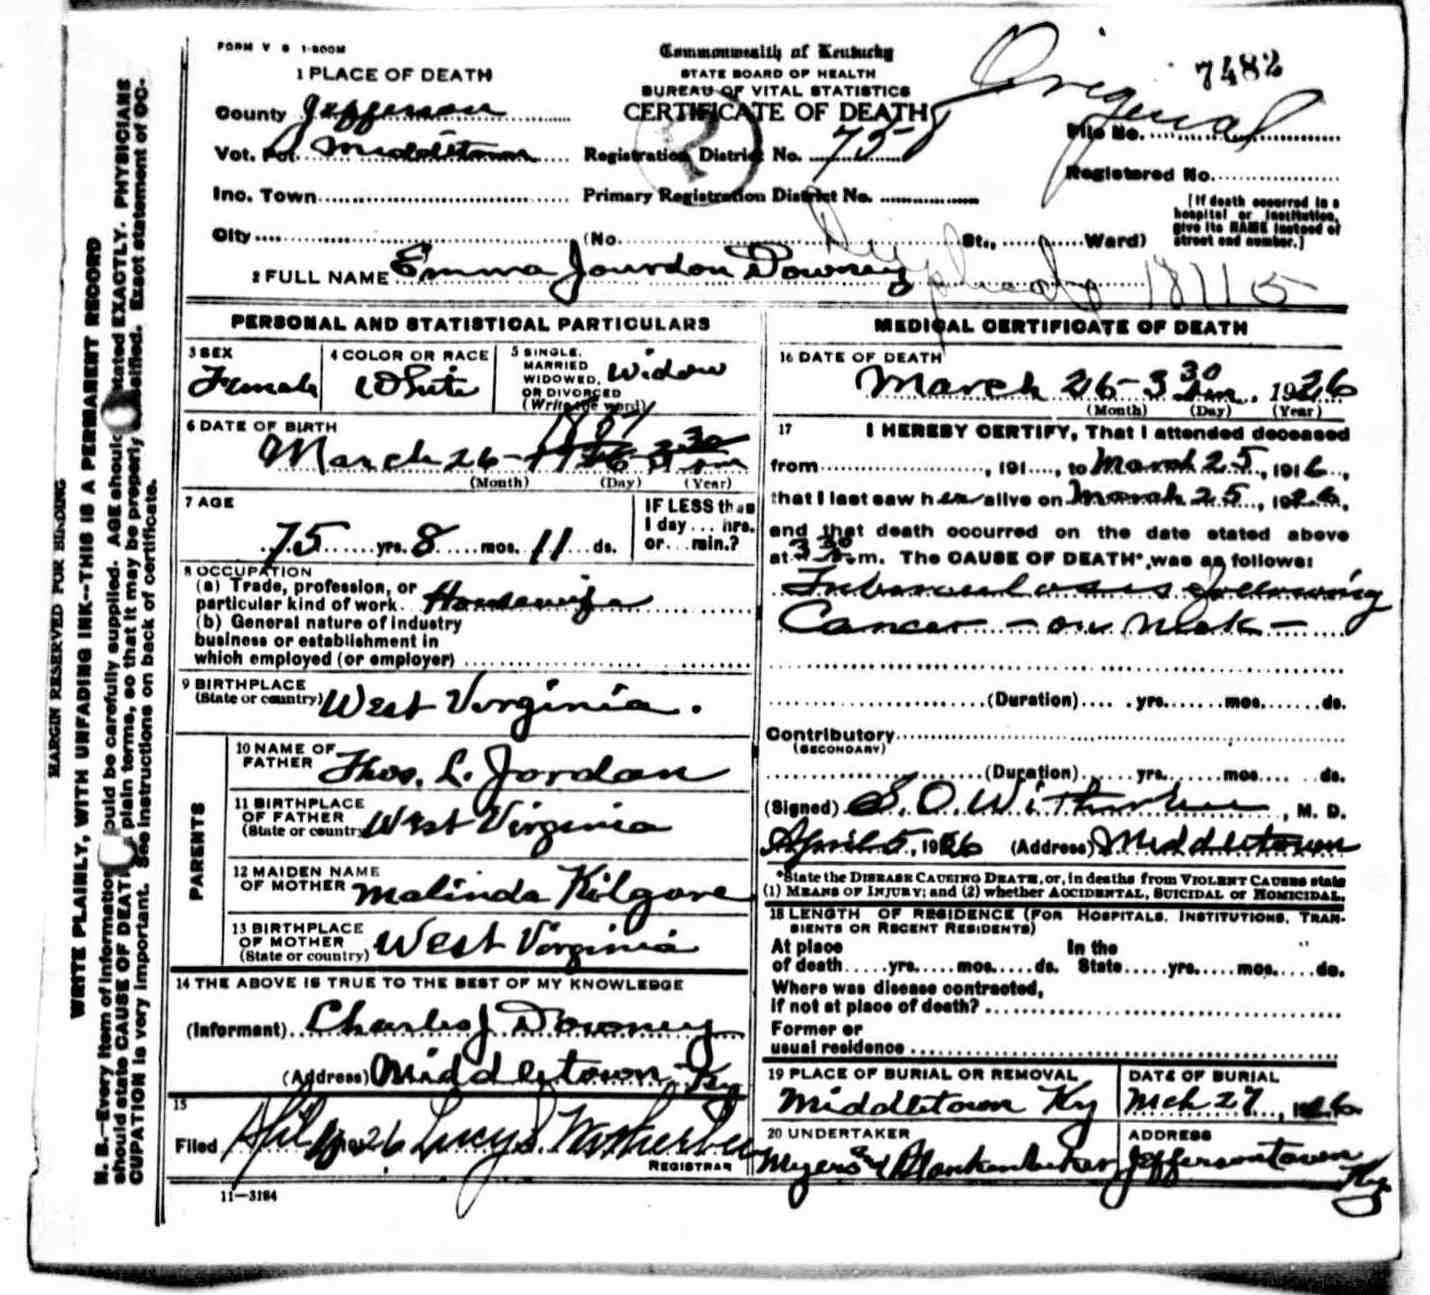 FORM V S 1-500M
Commonwealth of Kentucky
STATE BOARD OF HEALTH
BUREAU OF VITAL STATISTICS
CERTIFICATE OF DEATH
Original
7482
1 PLACE OF DEATH
County Jefferson
Vot. Pct. Middletown
Inc. Town
City
Registration District No. 758
Primary Registration District No.
(No. St., Ward)
File No.
Registered No.
[If death occurred in a
hospital or institution,
give its NAME instead of
street and number.]
2 FULL NAME Emma Jourdon Downey
PERSONAL AND STATISTICAL PARTICULARS
3 SEX
Female
4 COLOR OR RACE
White
5 SINGLE,
MARRIED
WIDOWED,
OR DIVORCED
(Write the word)
Widow
6 DATE OF BIRTH
March 26-
(Month) (Day) (Year)
7 AGE
75 yrs. 8 mos. 11 ds.
IF LESS than
1 day ... hrs.
or ... min.?
8 OCCUPATION
(a) Trade, profession, or
particular kind of work. Housewife
(b) General nature of industry
business or establishment in
which employed (or employer)
9 BIRTHPLACE
(State or country) West Virginia.
PARENTS
10 NAME OF
FATHER Thos. L. Jordan
11 BIRTHPLACE
OF FATHER
(State or country) West Virginia
12 MAIDEN NAME
OF MOTHER Malinda Kilgore
13 BIRTHPLACE
OF MOTHER
(State or country) West Virginia
14 THE ABOVE IS TRUE TO THE BEST OF MY KNOWLEDGE
(Informant) Charles J Downey
(Address) Middletown Ky
15
Filed 1926 Lucy S. Witherbee
REGISTRAR
11—3184
MEDICAL CERTIFICATE OF DEATH
16 DATE OF DEATH
March 26-3 30 am. 1926
(Month) (Day) (Year)
17 I HEREBY CERTIFY, That I attended deceased
from , 191 , to March 25, 1916,
that I last saw her alive on March 25, 1926,
and that death occurred on the date stated above
at 3 30 a.m. The CAUSE OF DEATH*, was as follows:
Tuberculosis following
Cancer - on neck -
(Duration) yrs. mos. ds.
Contributory
(SECONDARY)
(Duration) yrs. mos. ds.
(Signed) S. O. , M. D.
April 5, 1926 (Address) Middletown
*State the DISEASE CAUSING DEATH, or, in deaths from VIOLENT CAUSES state
(1) MEANS OF INJURY; and (2) whether ACCIDENTAL, SUICIDAL or HOMICIDAL.
18 LENGTH OF RESIDENCE (FOR HOSPITALS, INSTITUTIONS, TRAN-
SIENTS OR RECENT RESIDENTS)
At place In the
of death yrs. mos. ds. State yrs. mos. ds.
Where was disease contracted,
if not at place of death?
Former or
usual residence
19 PLACE OF BURIAL OR REMOVAL
Middletown Ky
DATE OF BURIAL
Mch 27, 1926
20 UNDERTAKER
Myers & Blankenbeker
ADDRESS
Jeffersontown
Ky
MARGIN RESERVED FOR BINDING
WRITE PLAINLY, WITH UNFADING INK--THIS IS A PERMANENT RECORD
N. B.—Every item of information should be carefully supplied. AGE should be stated EXACTLY. PHYSICIANS
should state CAUSE OF DEATH in plain terms, so that it may be properly classified. Exact statement of OC-
CUPATION is very important. See instructions on back of certificate.